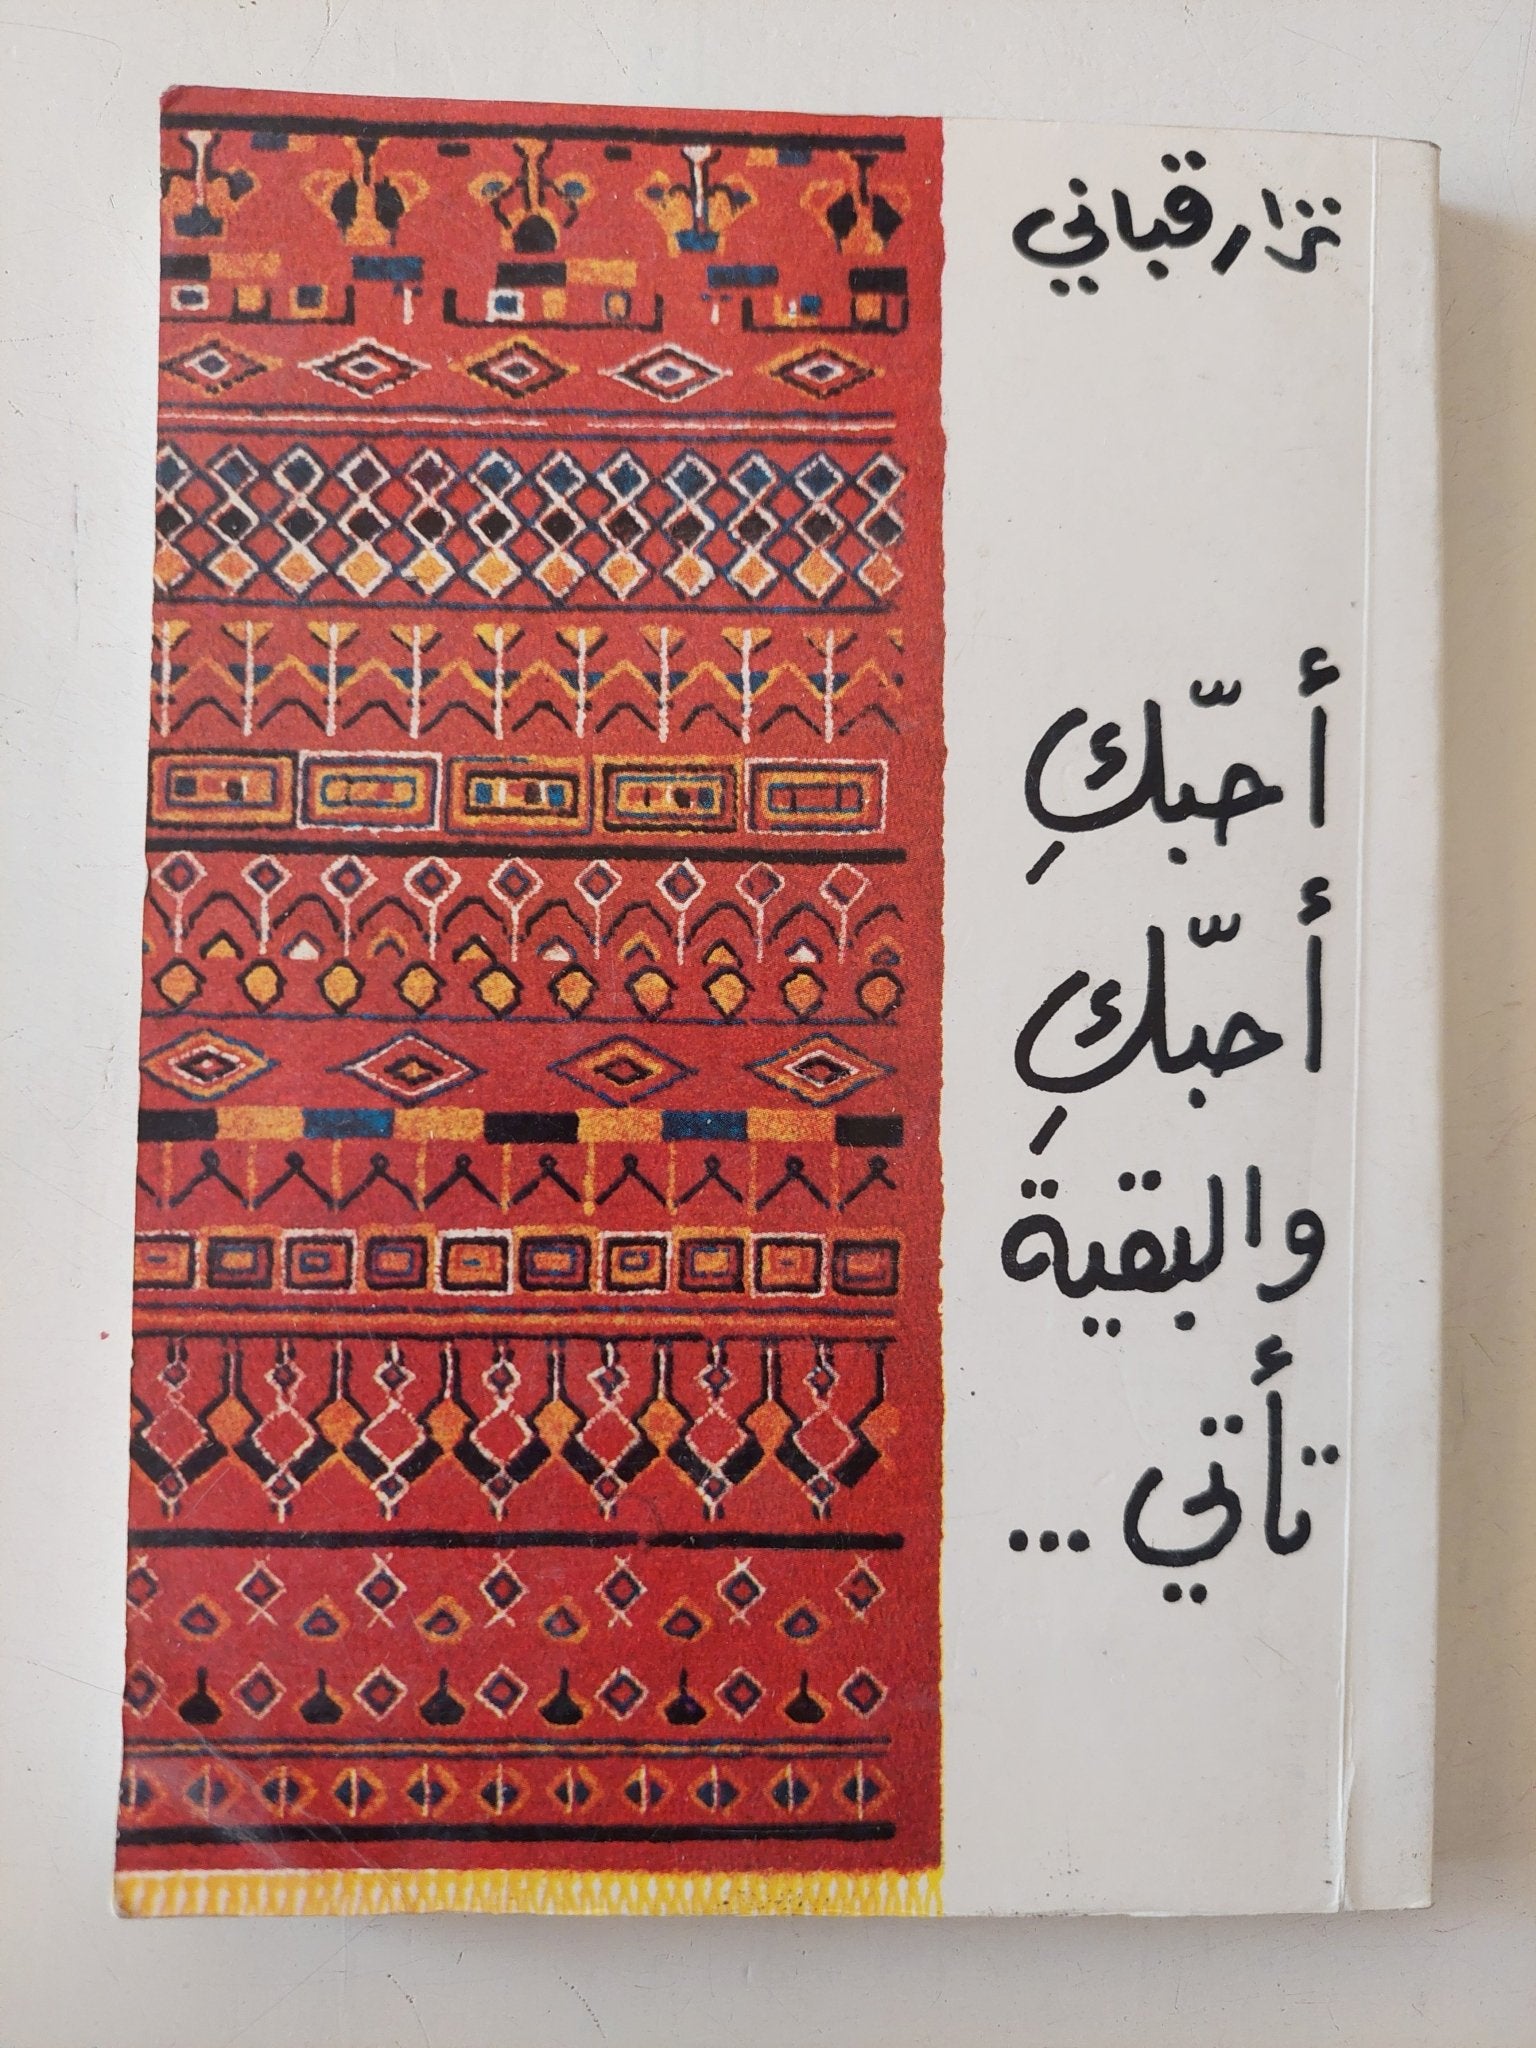 نزار قباني
أحبّكِ
أحبّكِ
والبقية
تأتي ...